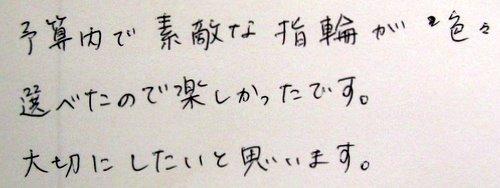 予算内で素敵な指輪が色々
選べたので楽しかったです。
大切にしたいと思います。